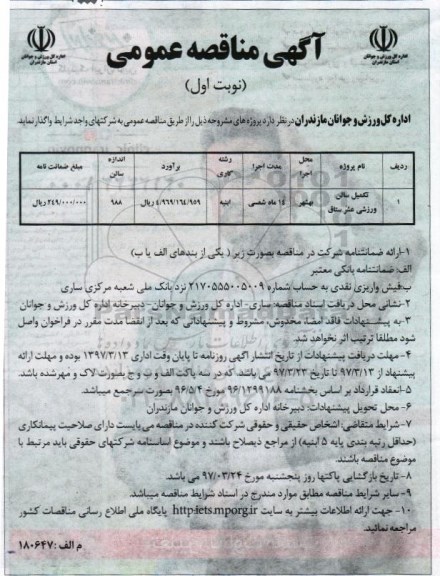 اداره کل ورزش و جوانان
استان مازندران
آگهی مناقصه عمومی
اداره کل ورزش و جوانان
استان مازندران
(نوبت اول)
اداره کل ورزش و جوانان مازندران در نظر دارد پروژه های مشروحه ذیل را از طریق مناقصه عمومی به شرکتهای واجد شرایط واگذار نماید.
ردیف نام پروژه محل اجرا مدت اجرا رشته کاری برآورد اندازه سالن مبلغ ضمانت نامه
۱ تکمیل سالن ورزشی علی متاق بهشهر ۱۴ ماه شمسی ابنیه ۴/۹۶۹/۱۹۴/۹۵۹ ریال ۹۸۸ ۲۴۹/۰۰۰/۰۰۰ ریال
۱-ارائه ضمانتنامه شرکت در مناقصه بصورت زیر ( یکی از بندهای الف یا ب)
الف: ضمانتنامه بانکی معتبر
ب:فیش واریزی نقدی به حساب شماره ۲۱۷۰۵۵۵۰۰۵۰۰۹ نزد بانک ملی شعبه مرکزی ساری
۲-نشانی محل دریافت اسناد مناقصه: ساری- اداره کل ورزش و جوانان- دبیرخانه اداره کل ورزش و جوانان
۳-به پیشنهادات فاقد امضا، مخدوش، مشروط و پیشنهاداتی که بعد از انقضا مدت مقرر در فراخوان واصل
شود مطلقا ترتیب اثر نخواهد شد.
۴- مهلت دریافت پیشنهادات از تاریخ انتشار آگهی روزنامه تا پایان وقت اداری ۱۳۹۷/۳/۱۳ بوده و مهلت ارائه
پیشنهاد از ۹۷/۳/۱۳ تا تاریخ ۹۷/۳/۲۳ می باشد. که در سه پاکت الف و ب و ج بصورت لاک و مهرشده باشد.
۵-انعقاد قرارداد بر اساس بخشنامه ۹۶/۱۲۹۹۱۸۸ مورخ ۹۶/۵/۴ بصورت سرجمع میباشد.
۶- محل تحویل پیشنهادات: دبیرخانه اداره کل ورزش و جوانان مازندران
۷-شرایط متقاضی: اشخاص حقیقی و حقوقی شرکت کننده در مناقصه می بایست دارای صلاحیت پیمانکاری
(حداقل رتبه بندی پایه ۵ ابنیه) از مراجع ذیصلاح باشند و موضوع اساسنامه شرکتهای حقوقی باید مرتبط با
موضوع مناقصه باشند.
۸- تاریخ بازگشایی پاکتها روز پنجشنبه مورخ ۹۷/۰۳/۲۴ می باشد.
۹- سایر شرایط مناقصه مطابق موارد مندرج در اسناد شرایط مناقصه میباشد.
۱۰- جهت ارائه اطلاعات بیشتر به سایت http:iets.mporg.ir پایگاه ملی اطلاع رسانی مناقصات کشور
مراجعه نمائید.
م الف: ۱۸۰۶۴۷